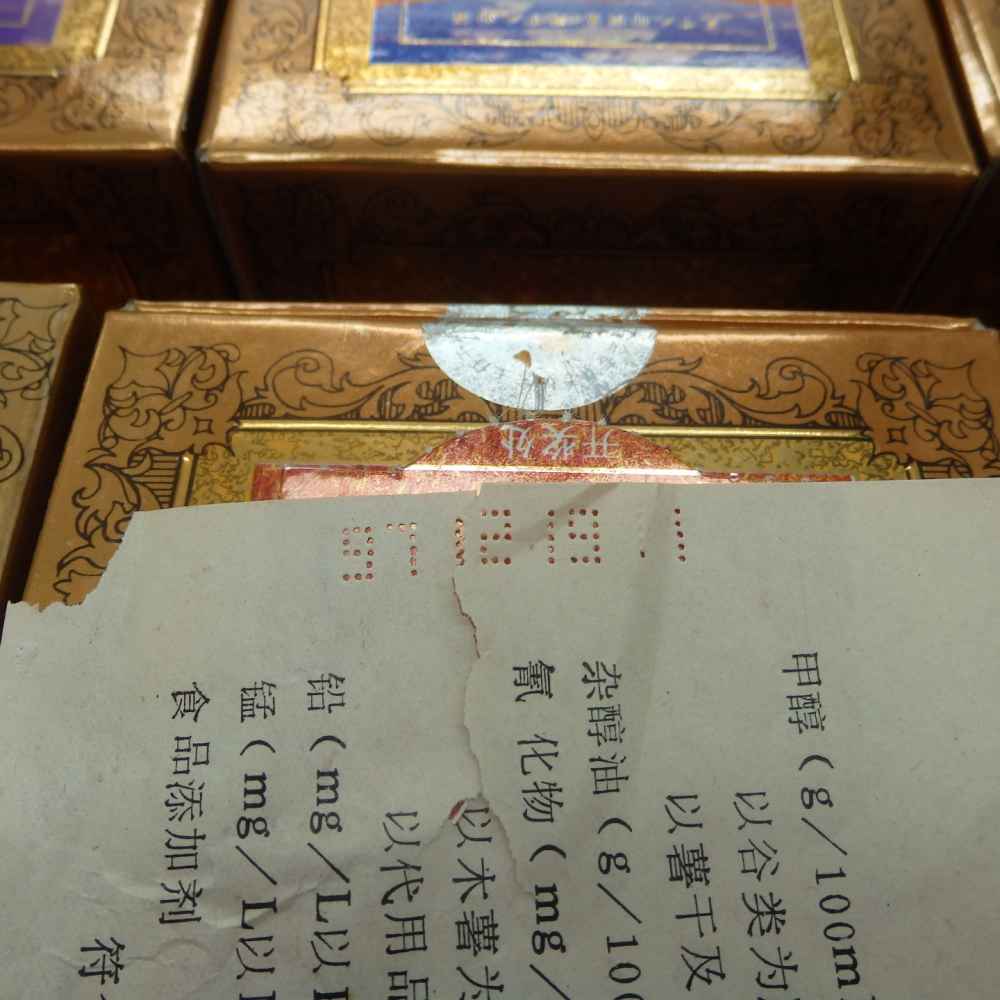 开奖处
甲醇(g/100m
以谷类为
以薯干及
杂醇油(g/10
氰化物(mg/
以木薯为
以代用品
铅(mg/L以
锰(mg/L以
食品添加剂
符